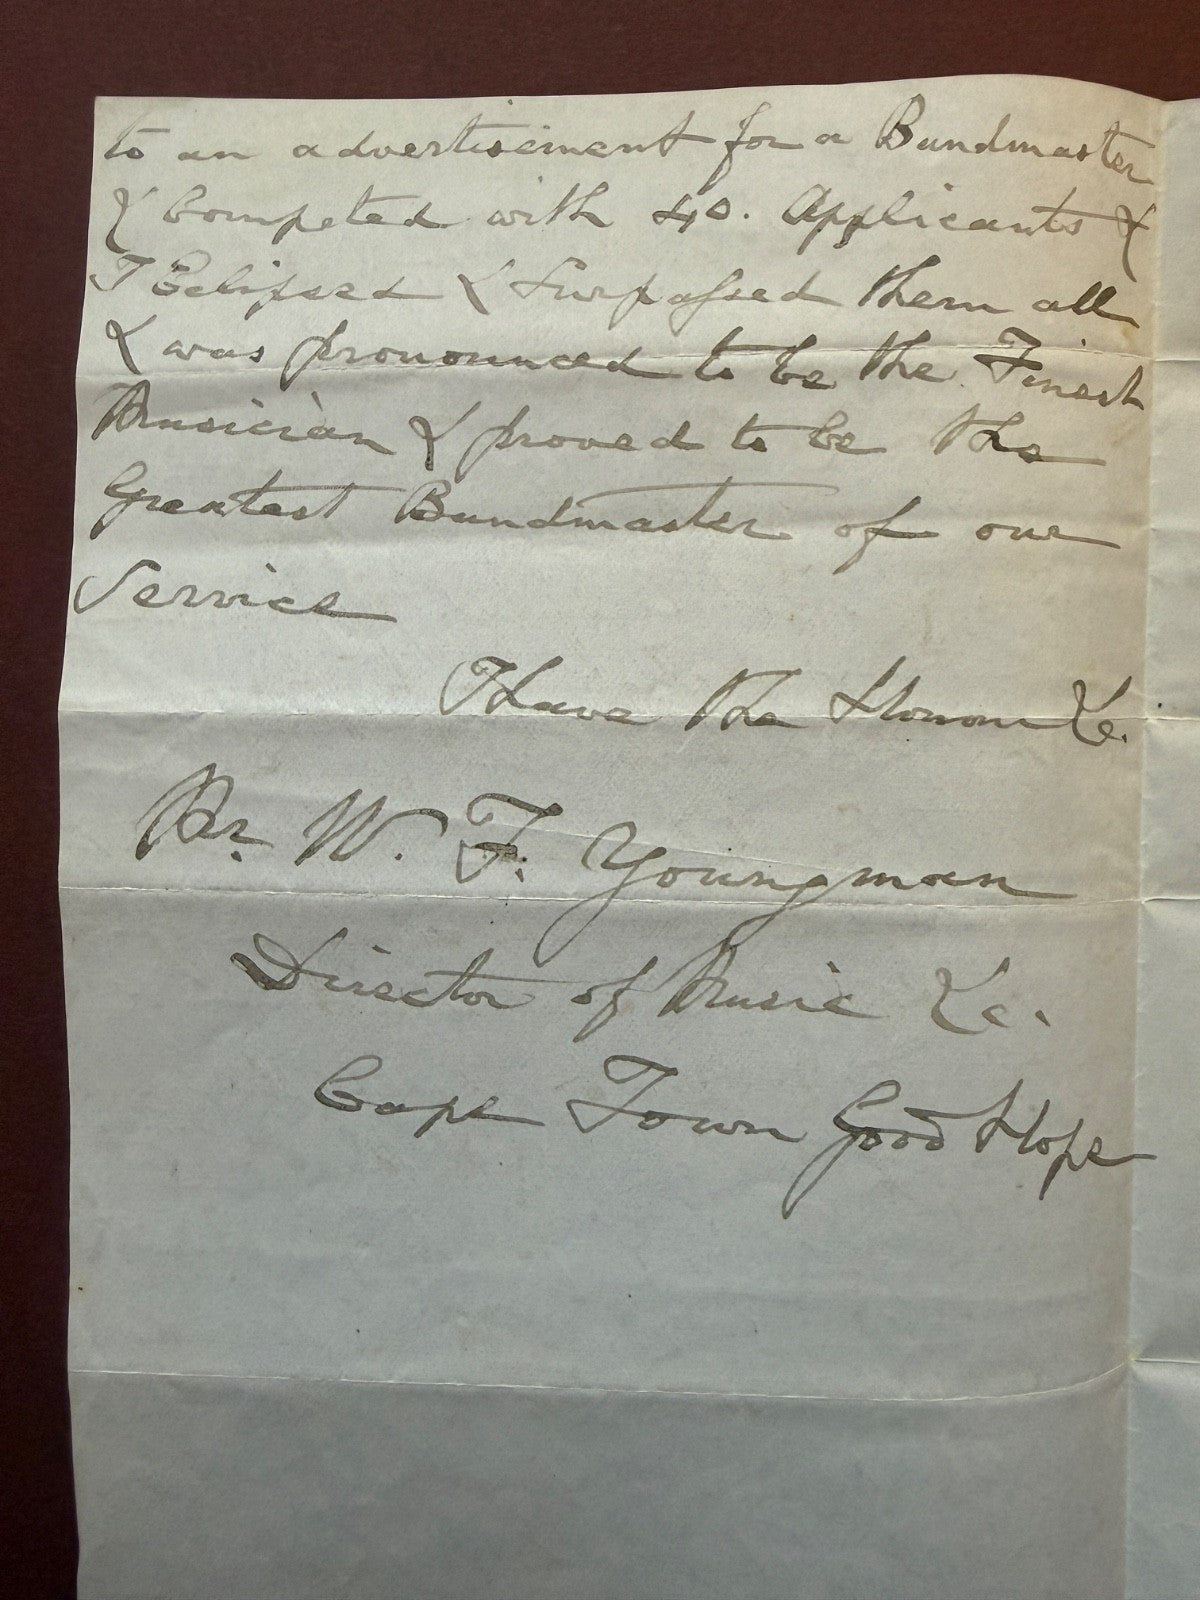 to an advertisement for a Bandmaster
& Competed with 40. Applicants &
I Eclipsed & Surpassed them all
& was pronounced to be the Finest
Musician & proved to be the
Greatest Bandmaster of our
Service
I have the Honour &c.
Mr. W. F. Youngman
Director of Music &c.
Cape Town Good Hope